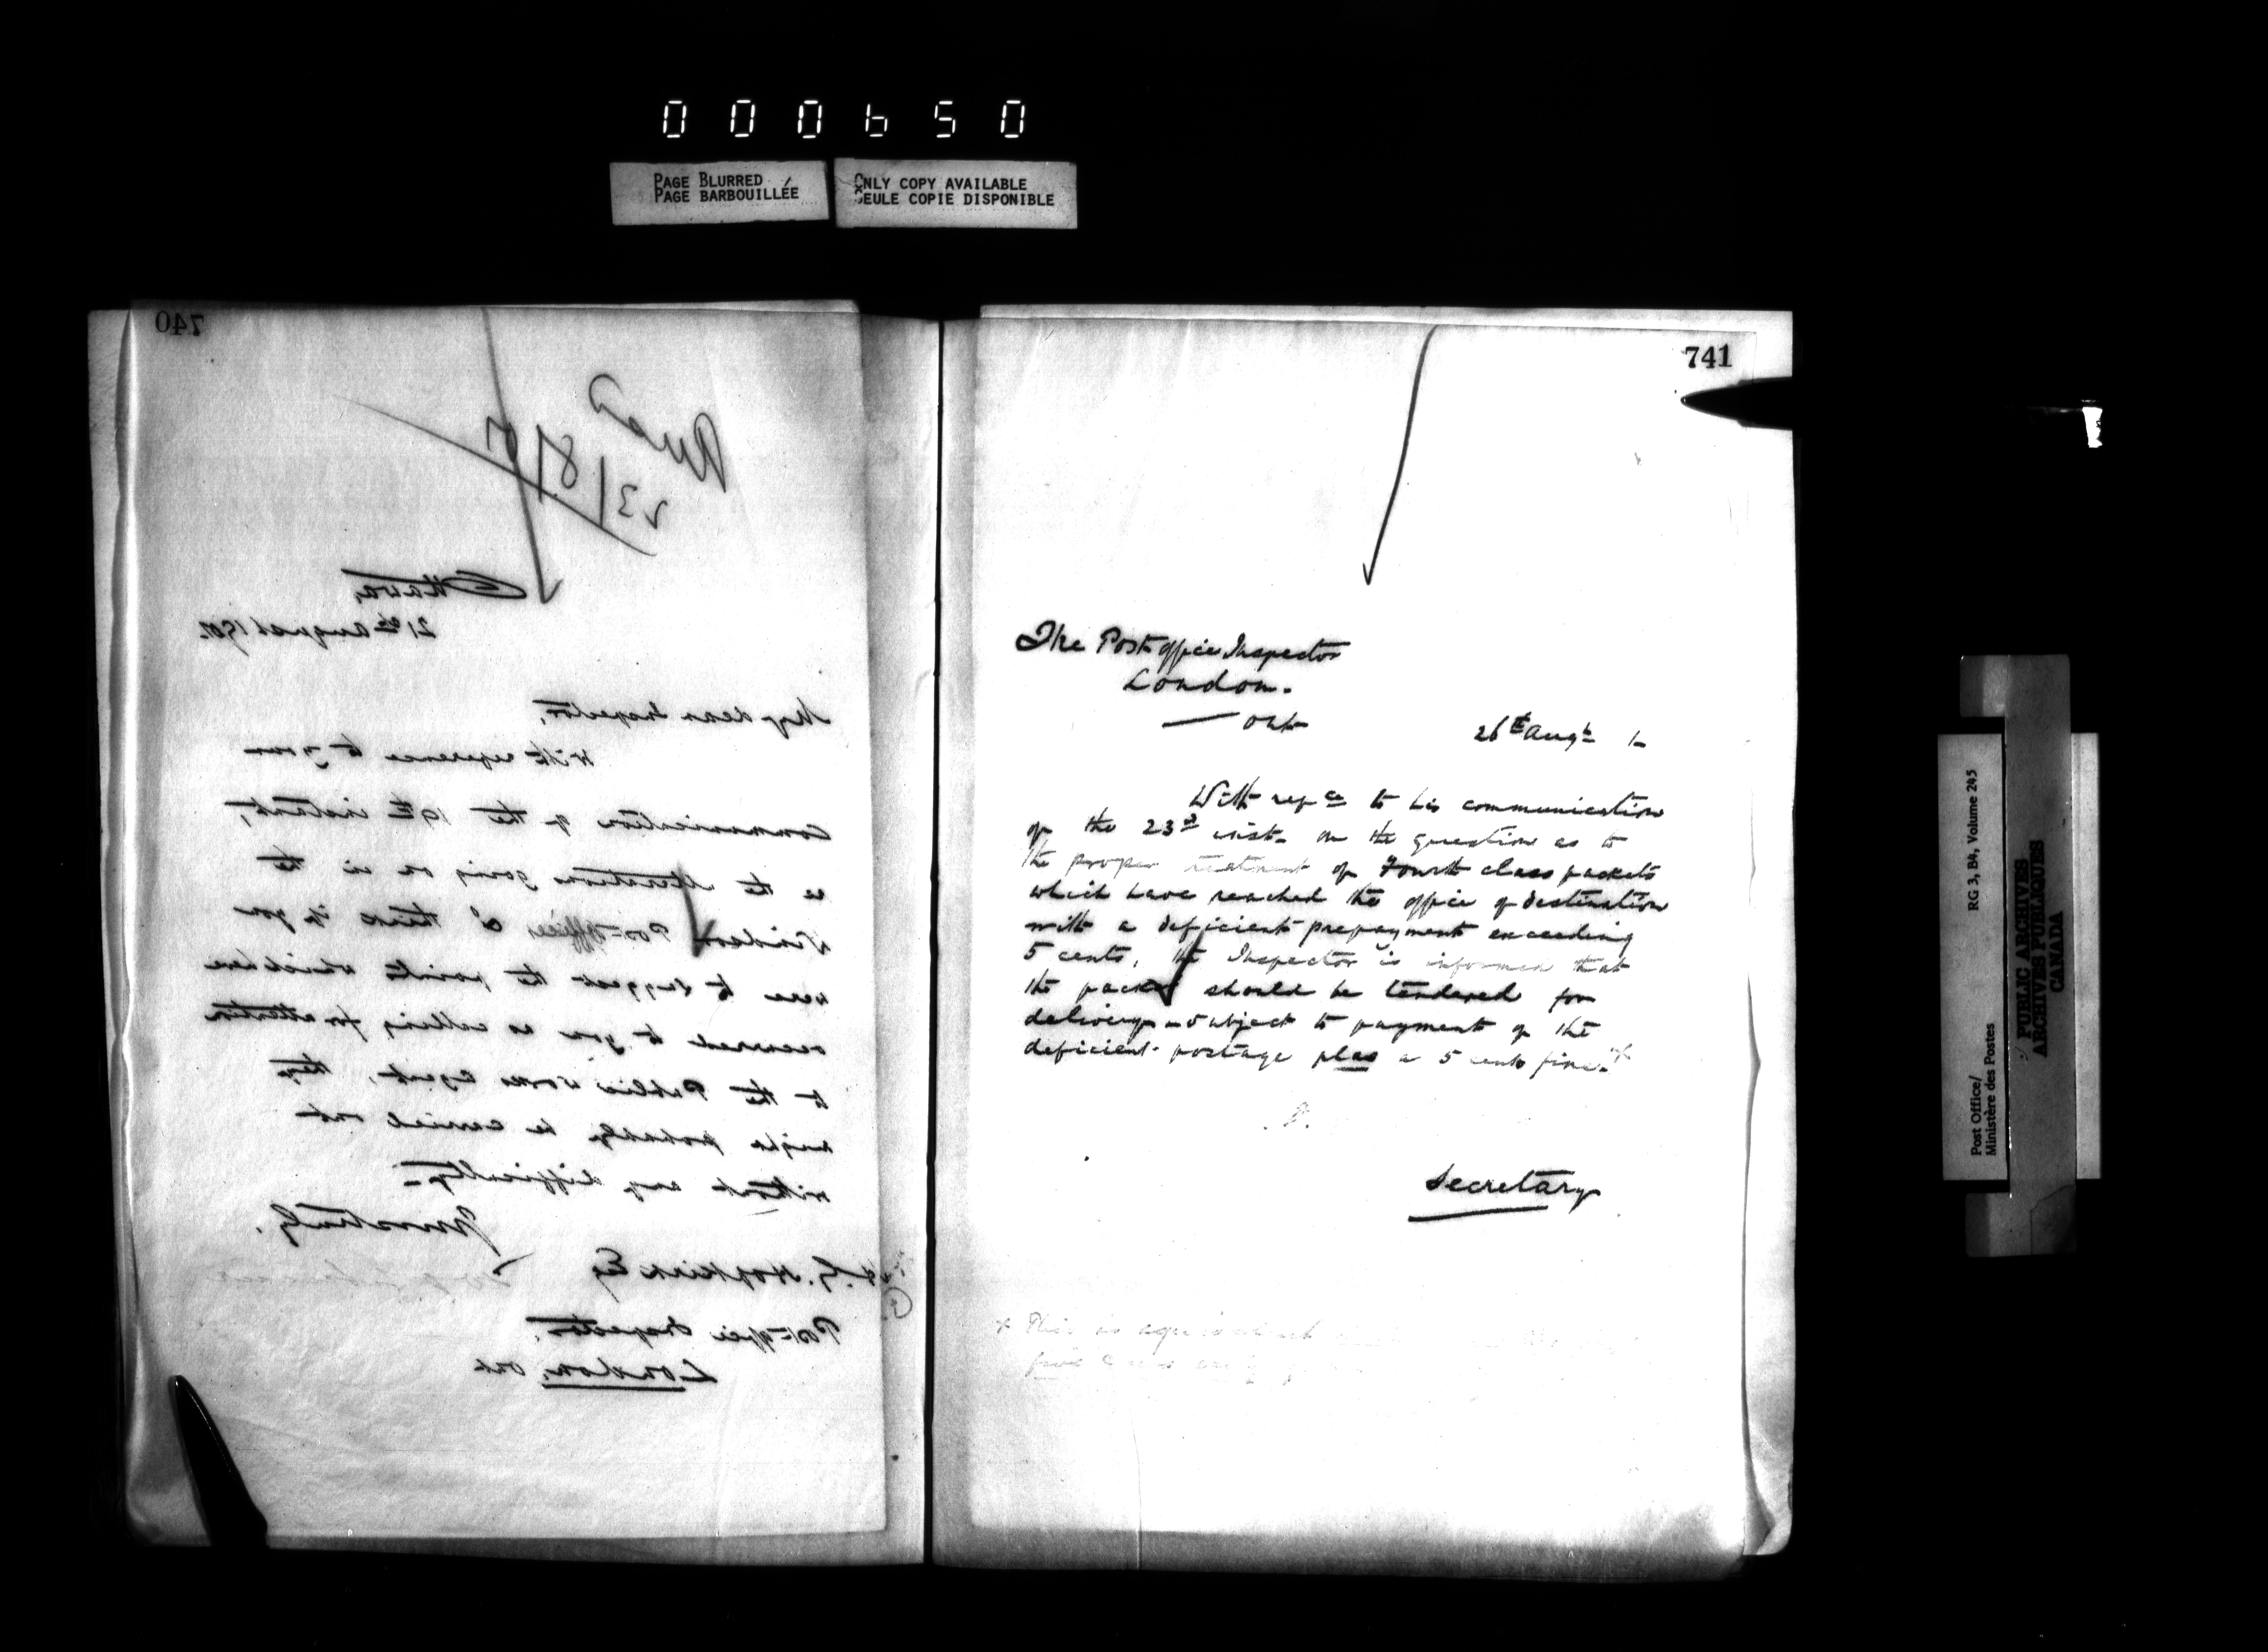 000650
PAGE BLURRED
PAGE BARBOUILLÉE
ONLY COPY AVAILABLE
SEULE COPIE DISPONIBLE
740
23/8/01
Ottawa,
21st August 1901
My dear Inspector,
With reference to your
communication of the 19th instant,
re the alterations going on in the
Windsor Post office, I think if you
were to suggest the points which have
occurred to you as calling for attention
to the Public Works Agent, they
might probably be carried out
without any difficulty.
Yours truly,
Hopkirk Esq
Post office Inspector,
London, Ont
741
The Post office Inspector
London.
Ont
26th Augt 1-
With refce to his communication
of the 23d inst. on the question as to
the proper treatment of Fourth class packets
which have reached the office of destination
with a deficient prepayment exceeding
5 cents, the Inspector is informed that
the packet should be tendered for
delivery subject to payment of the
deficient postage plus a 5 cents fine.*
Secretary
* This is equivalent
RG 3, B4, Volume 245
Post Office/
Ministère des Postes
PUBLIC ARCHIVES
ARCHIVES PUBLIQUES
CANADA